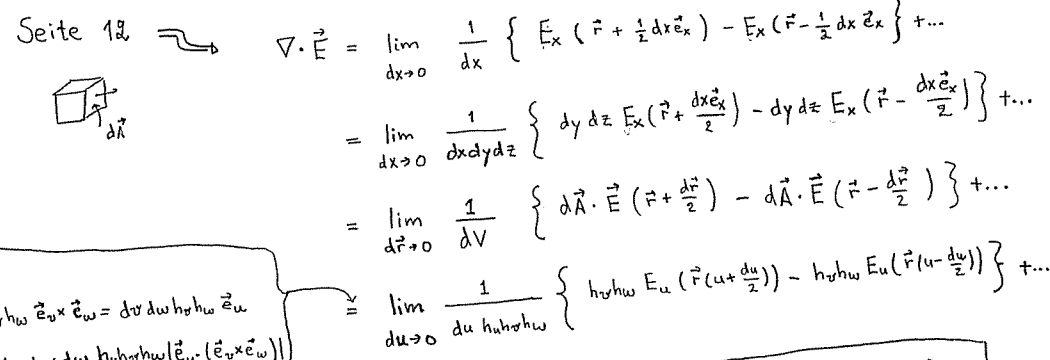 Seite 12
∇·E⃗ = lim dx→0 1/dx { Eₓ (r⃗ + ½dxe⃗ₓ) − Eₓ(r⃗ − ½ dx e⃗ₓ } + ...
dA⃗
= lim dx→0 1/dxdydz { dy dz Eₓ(r⃗ + dxe⃗ₓ/2) − dy dz Eₓ(r⃗ − dxe⃗ₓ/2) } + ...
= lim dr⃗→0 1/dV { dA⃗·E⃗ (r⃗ + dr⃗/2) − dA⃗·E⃗ (r⃗ − dr⃗/2) } + ...
= lim du→0 1/du hᵤhᵥh_w { hᵥh_w Eᵤ (r⃗(u+du/2)) − hᵥh_w Eᵤ(r⃗(u−du/2)) } + ...
h_w e⃗ᵥ× e⃗_w = dv dw hᵥh_w e⃗ᵤ
dw hᵤhᵥh_w |e⃗ᵤ·(e⃗ᵥ×e⃗_w)|